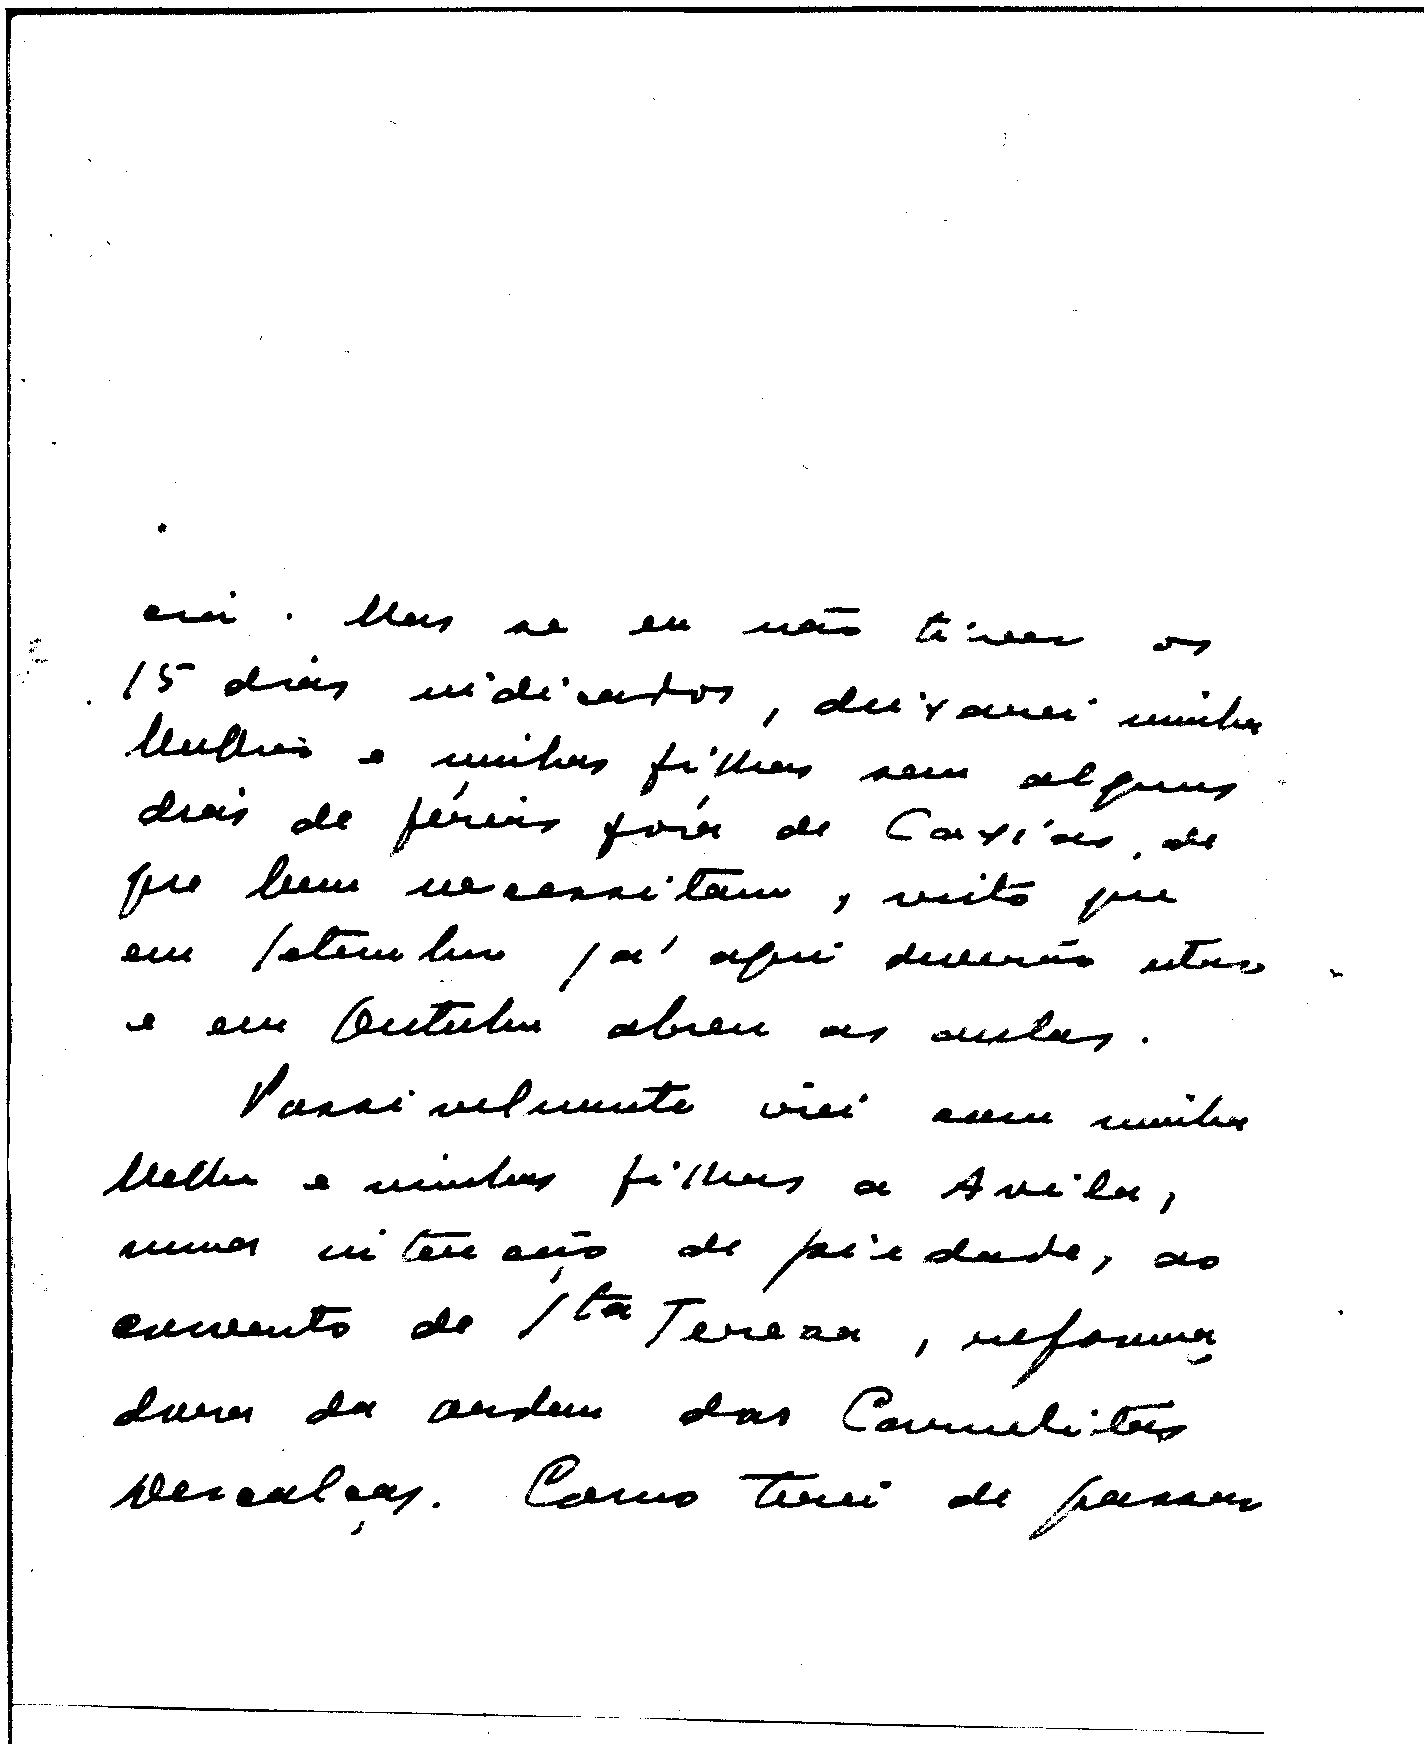 . Mas se eu não tiver os
15 dias indicados, deixarei minha
Mulher e minhas filhas sem alguns
dias de férias fóra de Caxias, de
que bem necessitam, visto que
em Setembro já aqui deverão estar
e em Outubro abrem as aulas.
Possivelmente irei com minha
Mulher e minhas filhas a Avila,
numa intenção de piedade, ao
convento de Sta Teresa, reforma
dora da ordem das Carmelitas
Descalças. Como terei de passar